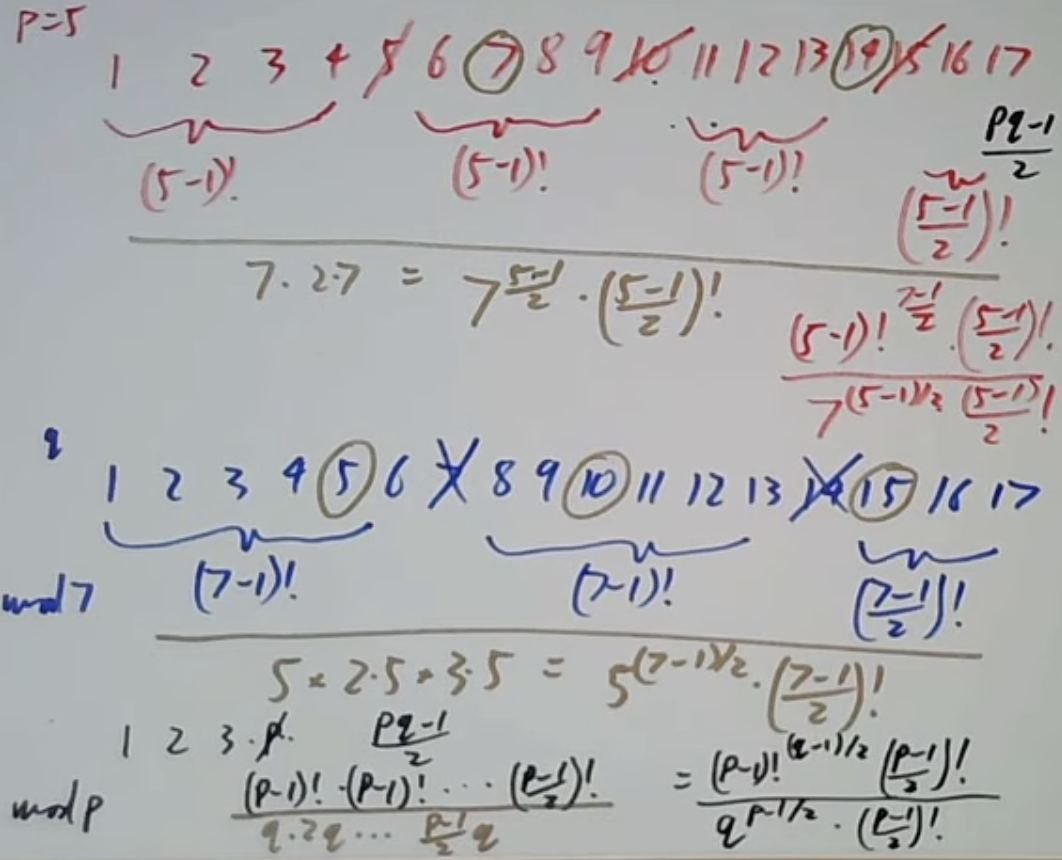 p=5
1 2 3 4 5 6 7 8 9 10 11 12 13 14 15 16 17
(5-1)! (5-1)! (5-1)! (5-1/2)! pq-1/2
7·2·7 = 7^(5-1/2) · (5-1/2)!
(5-1)!^(7-1/2) · (5-1/2)! / 7^((5-1)/2) (5-1)/2!
q
1 2 3 4 5 6 7 8 9 10 11 12 13 14 15 16 17
mod 7 (7-1)! (7-1)! (7-1/2)!
5×2·5×3·5 = 5^((7-1)/2) · (7-1/2)!
1 2 3 · p · pq-1/2
mod p (p-1)! · (p-1)! ··· (p-1/2)! / q·2q··· p-1/2 q = (p-1)!^((q-1)/2) (p-1/2)! / q^(p-1/2) · (p-1/2)!